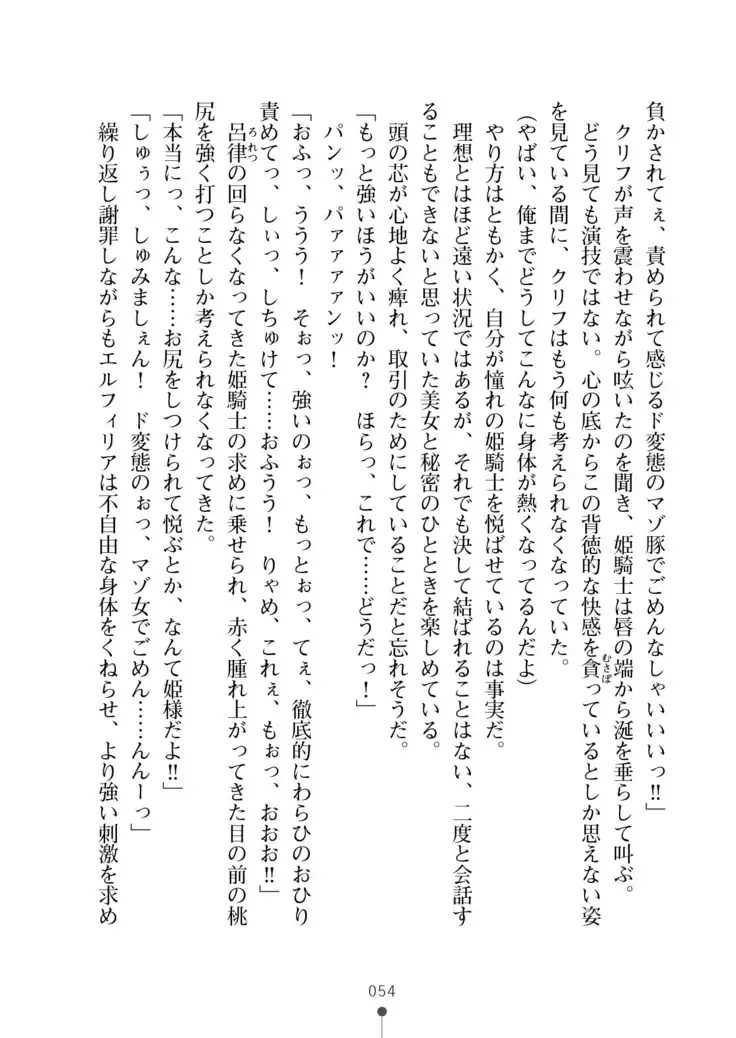 負かされてぇ、責められて感じるド変態のマゾ豚でごめんなしゃいいいっ‼」
　クリフが声を震わせながら呟いたのを聞き、姫騎士は唇の端から涎を垂らして叫ぶ。
　どう見ても演技ではない。心の底からこの背徳的な快感を貪っているとしか思えない姿
むさぼ
を見ている間に、クリフはもう何も考えられなくなっていた。
（やばい、俺までどうしてこんなに身体が熱くなってるんだよ）
　やり方はともかく、自分が憧れの姫騎士を悦ばせているのは事実だ。
　理想とはほど遠い状況ではあるが、それでも決して結ばれることはない、二度と会話す
ることもできないと思っていた美女と秘密のひとときを楽しめている。
　頭の芯が心地よく痺れ、取引のためにしていることだと忘れそうだ。
「もっと強いほうがいいのか？　ほらっ、これで……どうだっ！」
　パンッ、パァァァンッ！
「おふっ、ううう！　そぉっ、強いのぉっ、もっとぉっ、てぇ、徹底的にわらひのおひり
責めてっ、しぃっ、しちゅけて……おふうう！　りゃめ、これぇ、もぉっ、おおお‼」
　呂律の回らなくなってきた姫騎士の求めに乗せられ、赤く腫れ上がってきた目の前の桃
ろれつ
尻を強く打つことしか考えられなくなってきた。
「本当にっ、こんな……お尻をしつけられて悦ぶとか、なんて姫様だよ‼」
「しゅぅっ、しゅみましぇん！　ド変態のぉっ、マゾ女でごめん……んんーっ」
　繰り返し謝罪しながらもエルフィリアは不自由な身体をくねらせ、より強い刺激を求め
054